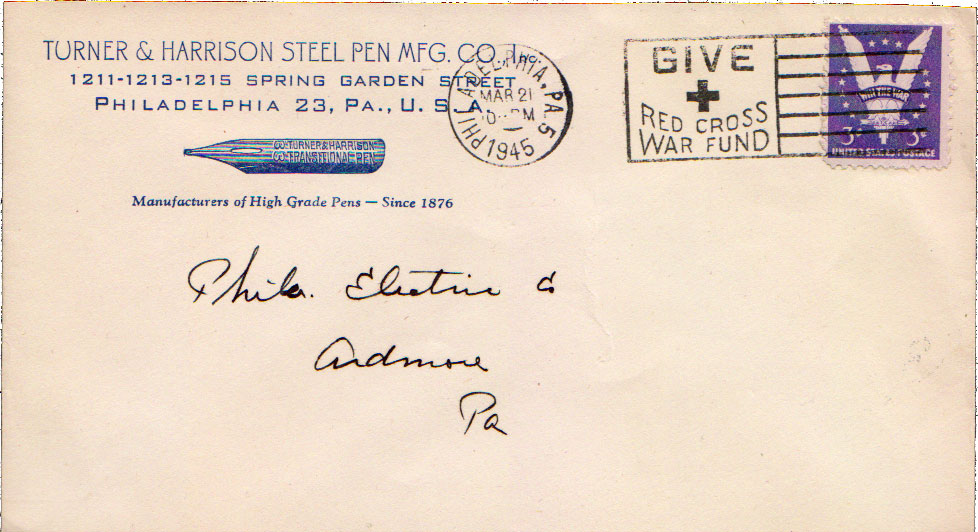 TURNER & HARRISON STEEL PEN MFG. CO. Inc.
1211-1213-1215 SPRING GARDEN STREET
PHILADELPHIA 23, PA., U. S. A.
TURNER & HARRISON
TRANSITIONAL PEN
Manufacturers of High Grade Pens — Since 1876
PHILADELPHIA, PA. 5
MAR 21
PM
1945
GIVE
RED CROSS
WAR FUND
WIN THE WAR
3¢ 3¢
UNITED STATES POSTAGE
Phila. Electric Co
Ardmore
Pa